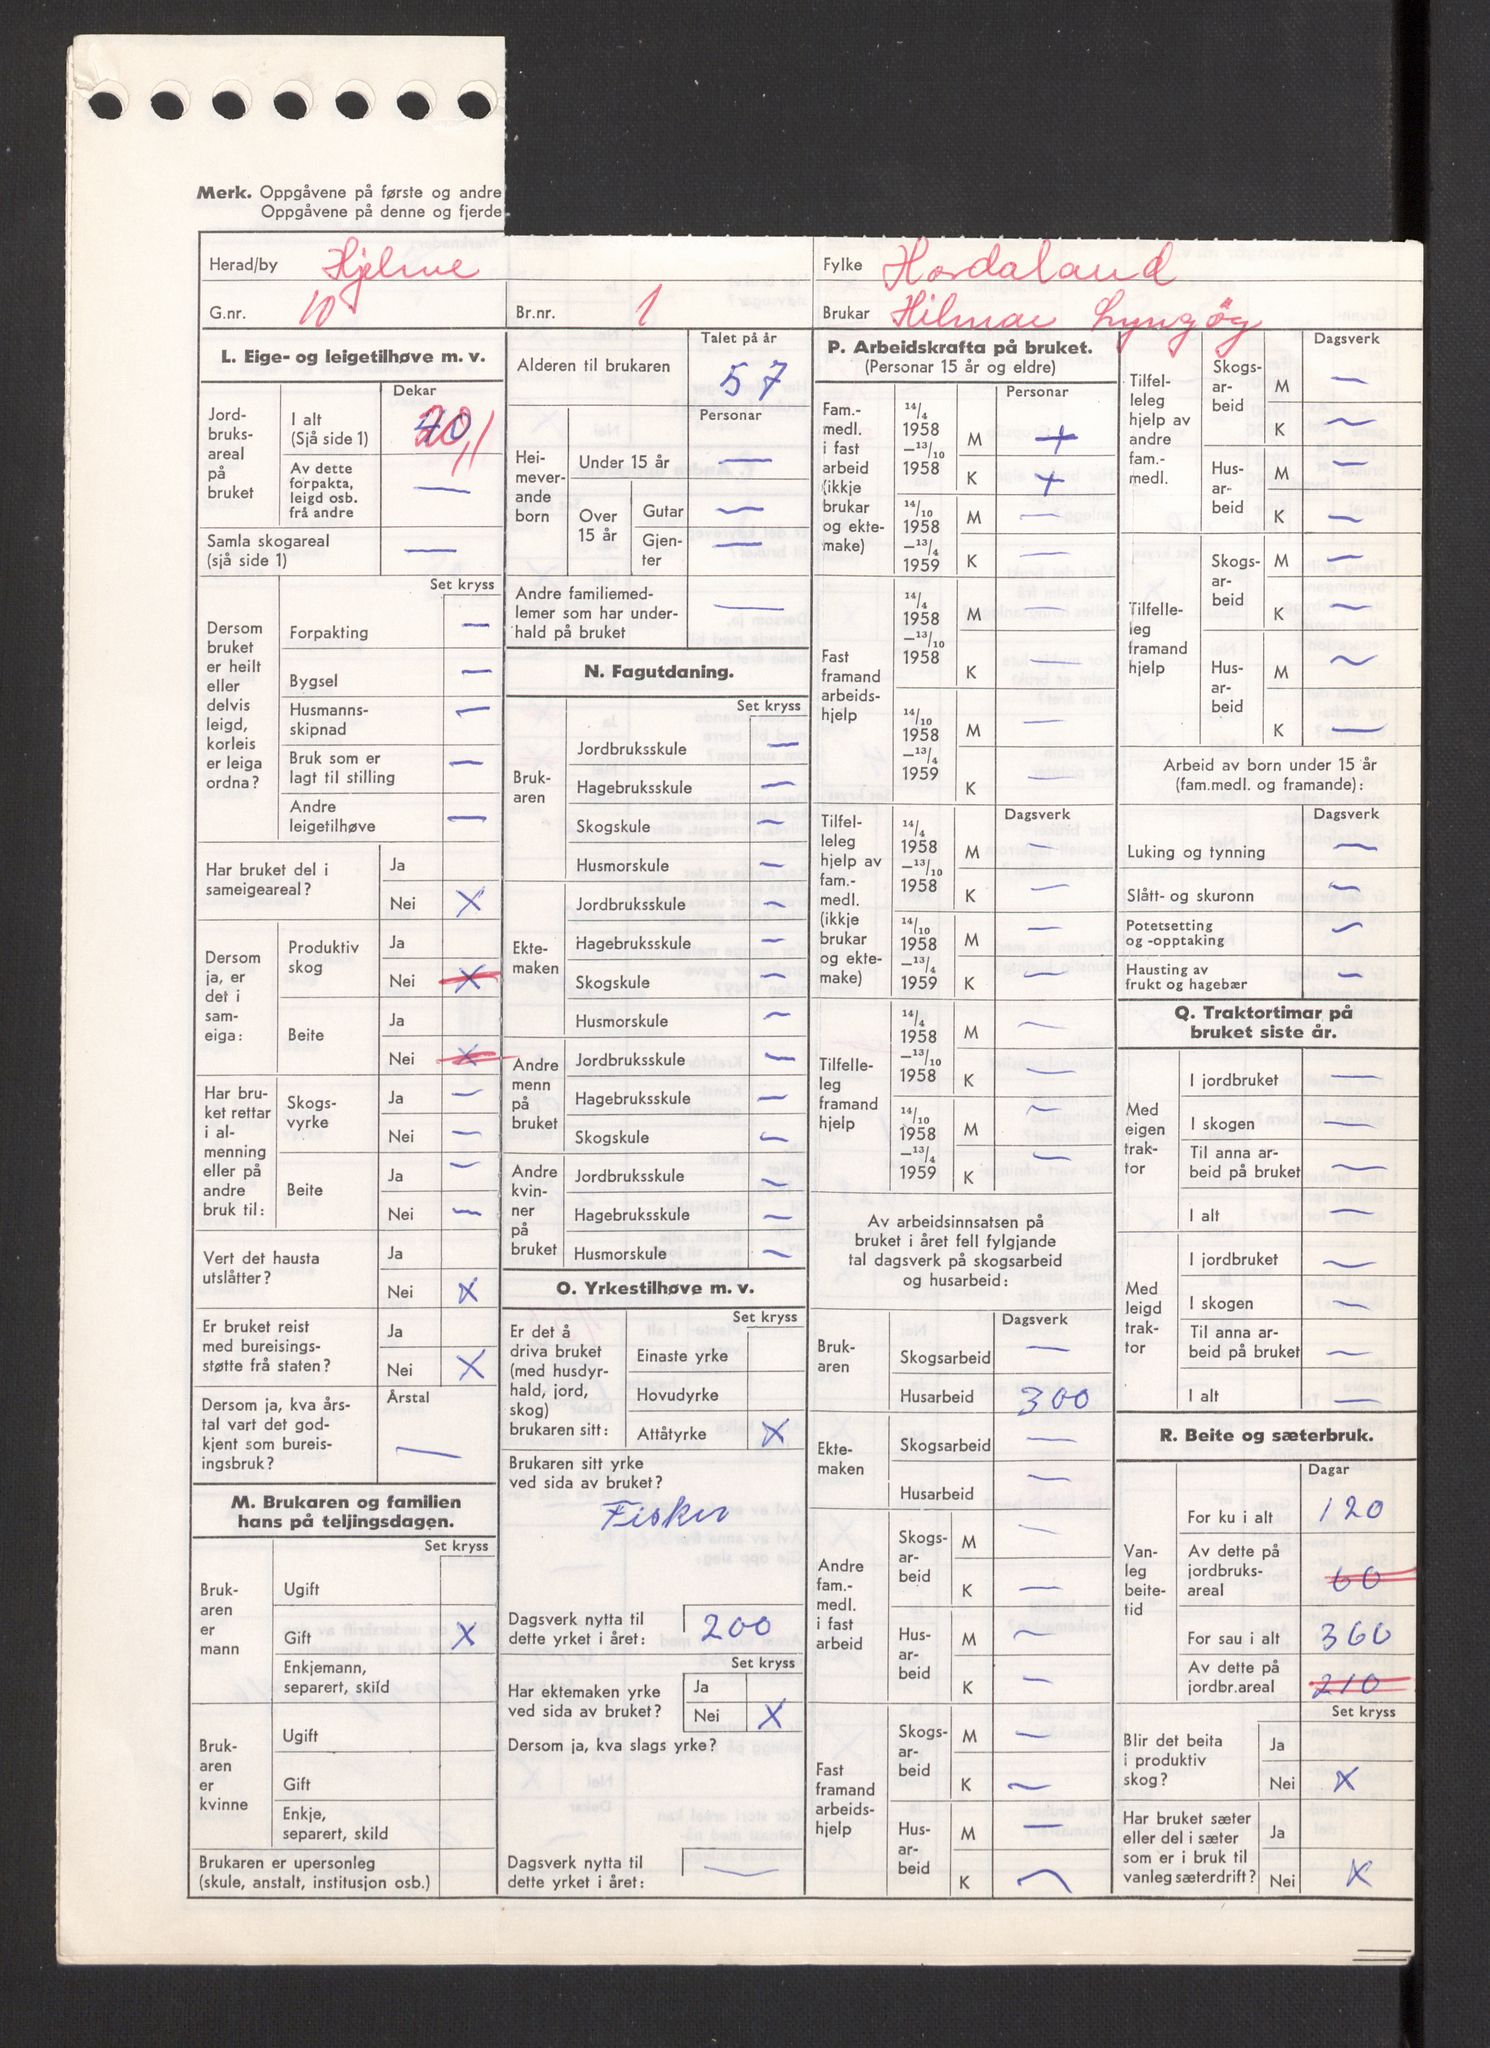 Merk. Oppgåvene på første og andre
Oppgåvene på denne og fjerde
Herad/by Hjelme
Fylke Hordaland
G.nr. 10
Br.nr. 1
Brukar Hilmar Lyngøy
L. Eige- og leigetilhøve m. v.
Dekar
Jord-
bruks-
areal
på
bruket
I alt
(Sjå side 1)
20,1
Av dette
forpakta,
leigd osb.
frå andre
—
Samla skogareal
(sjå side 1)
—
Set kryss
Dersom
bruket
er heilt
eller
delvis
leigd,
korleis
er leiga
ordna?
Forpakting —
Bygsel —
Husmanns-
skipnad —
Bruk som er
lagt til stilling —
Andre
leigetilhøve —
Har bruket del i
sameigeareal?
Ja
Nei X
Dersom
ja, er
det i
sam-
eiga:
Produktiv
skog
Ja
Nei X
Beite
Ja
Nei X
Har bru-
ket rettar
i al-
menning
eller på
andre
bruk til:
Skogs-
vyrke
Ja —
Nei —
Beite
Ja —
Nei —
Vert det hausta
utslåtter?
Ja
Nei X
Er bruket reist
med bureisings-
støtte frå staten?
Ja
Nei X
Dersom ja, kva års-
tal vart det god-
kjent som bureis-
ingsbruk?
Årstal
—
M. Brukaren og familien
hans på teljingsdagen.
Set kryss
Bruk-
aren
er
mann
Ugift
Gift X
Enkjemann,
separert, skild
Bruk-
aren
er
kvinne
Ugift
Gift
Enkje,
separert, skild
Brukaren er upersonleg
(skule, anstalt, institusjon osb.)
Talet på år
Alderen til brukaren 57
Personar
Hei-
mever-
ande
born
Under 15 år —
Over
15 år
Gutar —
Gjen-
ter —
Andre familiemed-
lemer som har under-
hald på bruket —
N. Fagutdaning.
Set kryss
Bruk-
aren
Jordbruksskule —
Hagebruksskule —
Skogskule —
Husmorskule —
Ekte-
maken
Jordbruksskule —
Hagebruksskule —
Skogskule —
Husmorskule —
Andre
menn
på
bruket
Jordbruksskule —
Hagebruksskule —
Skogskule —
Andre
kvin-
ner
på
bruket
Jordbruksskule —
Hagebruksskule —
Husmorskule —
O. Yrkestilhøve m. v.
Set kryss
Er det å
driva bruket
(med husdyr-
hald, jord,
skog)
brukaren sitt:
Einaste yrke
Hovudyrke
Attåtyrke X
Brukaren sitt yrke
ved sida av bruket?
Fisker
Dagsverk nytta til
dette yrket i året: 200
Set kryss
Har ektemaken yrke
ved sida av bruket?
Ja
Nei X
Dersom ja, kva slags yrke?
Dagsverk nytta til
dette yrket i året: —
P. Arbeidskrafta på bruket.
(Personar 15 år og eldre)
Personar
Fam.-
medl.
i fast
arbeid
(ikkje
brukar
og ekte-
make)
14/4
1958
–13/10
1958
M +
K +
14/10
1958
–13/4
1959
M —
K —
Fast
framand
arbeids-
hjelp
14/4
1958
–13/10
1958
M —
K —
14/10
1958
–13/4
1959
M —
K —
Dagsverk
Tilfel-
leleg
hjelp av
fam.-
medl.
(ikkje
brukar
og ekte-
make)
14/4
1958
–13/10
1958
M —
K —
14/10
1958
–13/4
1959
M —
K —
Tilfelle-
leg
framand
hjelp
14/4
1958
–13/10
1958
M —
K —
14/10
1958
–13/4
1959
M —
K —
Av arbeidsinnsatsen på
bruket i året fell fylgjande
tal dagsverk på skogsarbeid
og husarbeid:
Dagsverk
Bruk-
aren
Skogsarbeid —
Husarbeid 300
Ekte-
maken
Skogsarbeid —
Husarbeid —
Andre
fam.-
medl.
i fast
arbeid
Skogs-
ar-
beid
M —
K —
Hus-
ar-
beid
M —
K —
Fast
framand
arbeids-
hjelp
Skogs-
ar-
beid
M —
K —
Hus-
ar-
beid
M —
K —
Dagsverk
Tilfel-
leleg
hjelp av
andre
fam.-
medl.
Skogs-
ar-
beid
M —
K —
Hus-
ar-
beid
M —
K —
Tilfelle-
leg
framand
hjelp
Skogs-
ar-
beid
M —
K —
Hus-
ar-
beid
M —
K —
Arbeid av born under 15 år
(fam.medl. og framande):
Dagsverk
Luking og tynning —
Slått- og skuronn —
Potetsetting
og -opptaking —
Hausting av
frukt og hagebær —
Q. Traktortimar på
bruket siste år.
Med
eigen
trak-
tor
I jordbruket —
I skogen —
Til anna ar-
beid på bruket —
I alt —
Med
leigd
trak-
tor
I jordbruket —
I skogen —
Til anna ar-
beid på bruket —
I alt —
R. Beite og sæterbruk.
Dagar
Van-
leg
beite-
tid
For ku i alt 120
Av dette på
jordbruks-
areal 60
For sau i alt 360
Av dette på
jordbr.areal 210
Set kryss
Blir det beita
i produktiv
skog?
Ja
Nei X
Har bruket sæter
eller del i sæter
som er i bruk til
vanleg sæterdrift?
Ja
Nei X